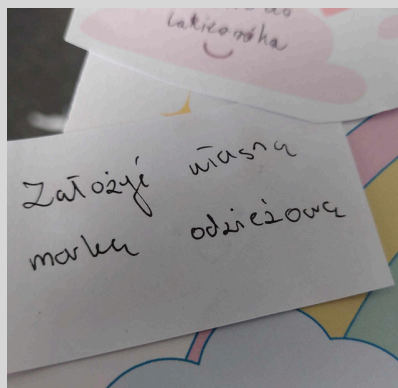 Założyć własną
markę odzieżową